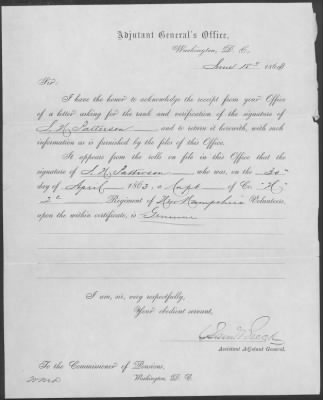 Adjutant General's Office,
Washington, D. C.,
June 15th 1864
Sir:
I have the honor to acknowledge the receipt from your Office
of a letter asking for the rank and verification of the signature of
S. N. Patterson and to return it herewith, with such
information as is furnished by the files of this Office.
It appears from the rolls on file in this Office that the
signature of S. N. Patterson who was, on the 30"
day of April 1863, a Capt of Co. "H"
2d Regiment of New Hampshire Volunteers,
upon the within certificate, is Genuine
I am, sir, very respectfully,
Your obedient servant,
Assistant Adjutant General.
To the Commissioner of Pensions,
Washington, D. C.